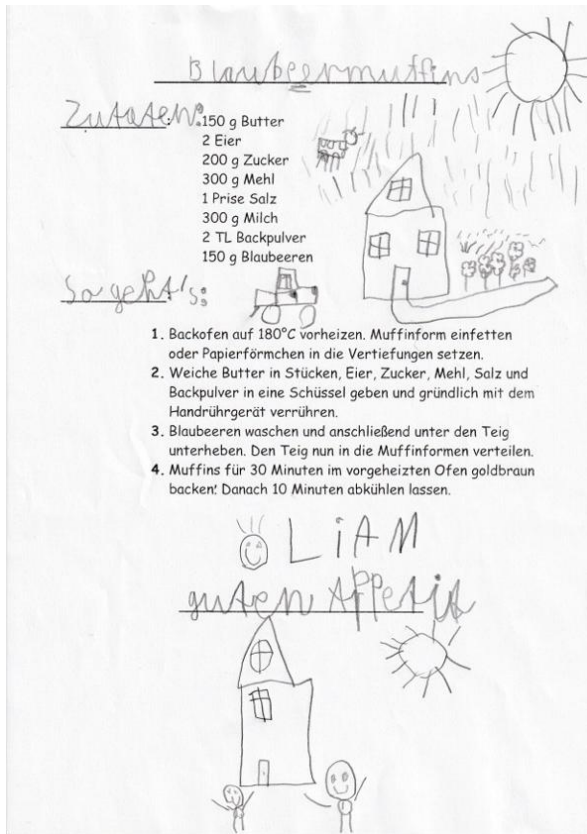 Blaubeermuffins
Zutaten:
150 g Butter
2 Eier
200 g Zucker
300 g Mehl
1 Prise Salz
300 g Milch
2 TL Backpulver
150 g Blaubeeren
So geht's:
1. Backofen auf 180°C vorheizen. Muffinform einfetten
oder Papierförmchen in die Vertiefungen setzen.
2. Weiche Butter in Stücken, Eier, Zucker, Mehl, Salz und
Backpulver in eine Schüssel geben und gründlich mit dem
Handrührgerät verrühren.
3. Blaubeeren waschen und anschließend unter den Teig
unterheben. Den Teig nun in die Muffinformen verteilen.
4. Muffins für 30 Minuten im vorgeheizten Ofen goldbraun
backen. Danach 10 Minuten abkühlen lassen.
LiAM
guten Appetit